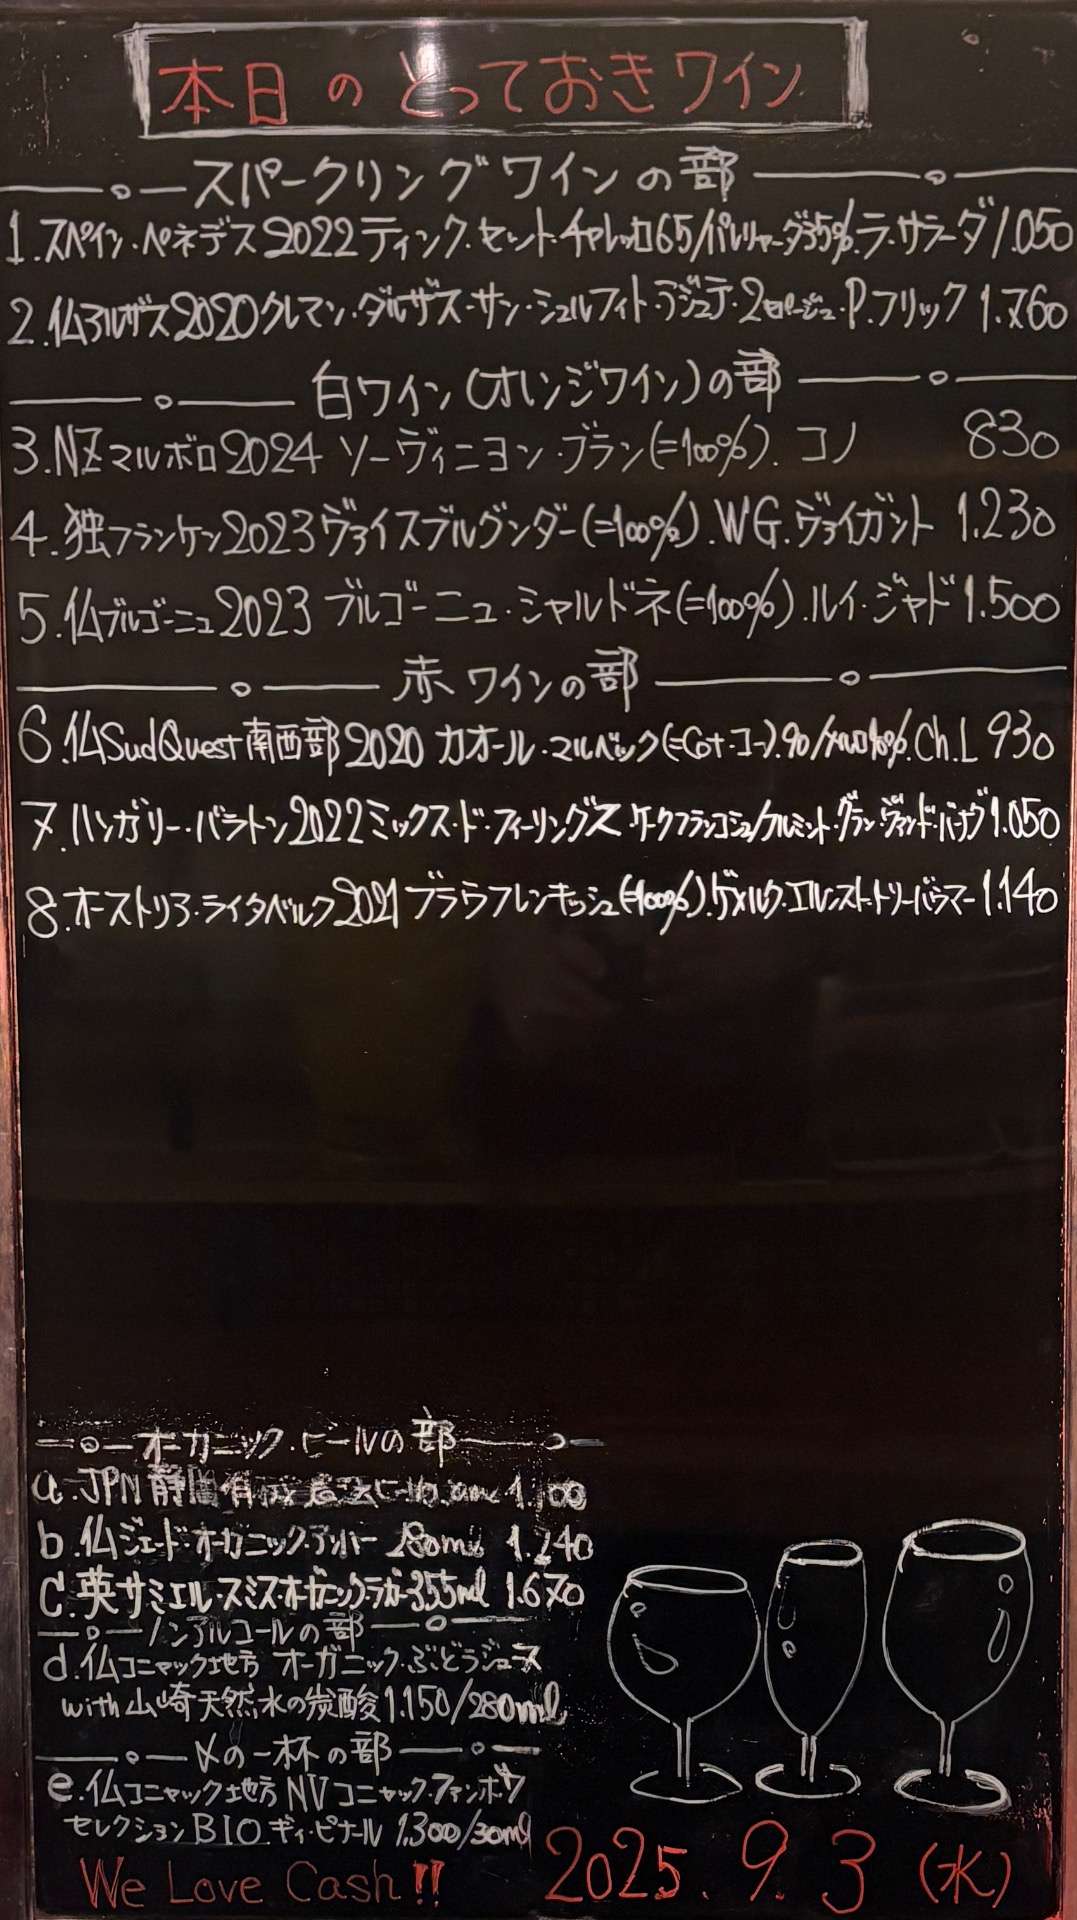 本日のとっておきワイン
スパークリングワインの部
1.スペイン・ペネデス2022ティンク.セント.チャレッロ65/パレリャーダ35%.ラ.サラーダ1.050
2.仏アルザス2020クレマン・ダルザス・サン・シュルフィト・アジュテ・2セパージュ・P.フリック 1.760
白ワイン(オレンジワイン)の部
3.NZマルボロ2024 ソーヴィニヨン・ブラン(=100%). コノ 830
4.独フランケン2023ヴァイスブルグンダー(=100%).WG.ヴァイガント 1.230
5.仏ブルゴーニュ2023 ブルゴーニュ・シャルドネ(=100%).ルイ・ジャド1.500
赤ワインの部
6.仏SudQuest南西部2020 カオール・マルベック(=Cot・コー).90/メルロ10%.Ch.L 930
7.ハンガリー・バラトン2022ミックス・ド・フィーリングス ケークフランコシュ/ケルミント・グラン・ヴァン・ド・バナヴ1.050
8.オーストリア・ライタベルク2021ブラウフレンキッシュ(=100%).ゲメルク・エルンスト・トリーバウマー1.140
オーガニック・ビールの部
a.JPN 静岡有
b.仏ジェード・オーガニック・アンバー 280ml 1.240
C.英サミエル・スミス・オーガニック・ラガー355ml 1.670
ノンアルコールの部
d.仏コニャック地方 オーガニック・ぶどうジュース
with山崎天然水の炭酸1.150/280ml
〆の一杯の部
e.仏コニャック地方 NVコニャック・ファンボワ
セレクションBIO.ギィ・ピナール 1.300/30ml
We Love Cash!! 2025.9.3(水)